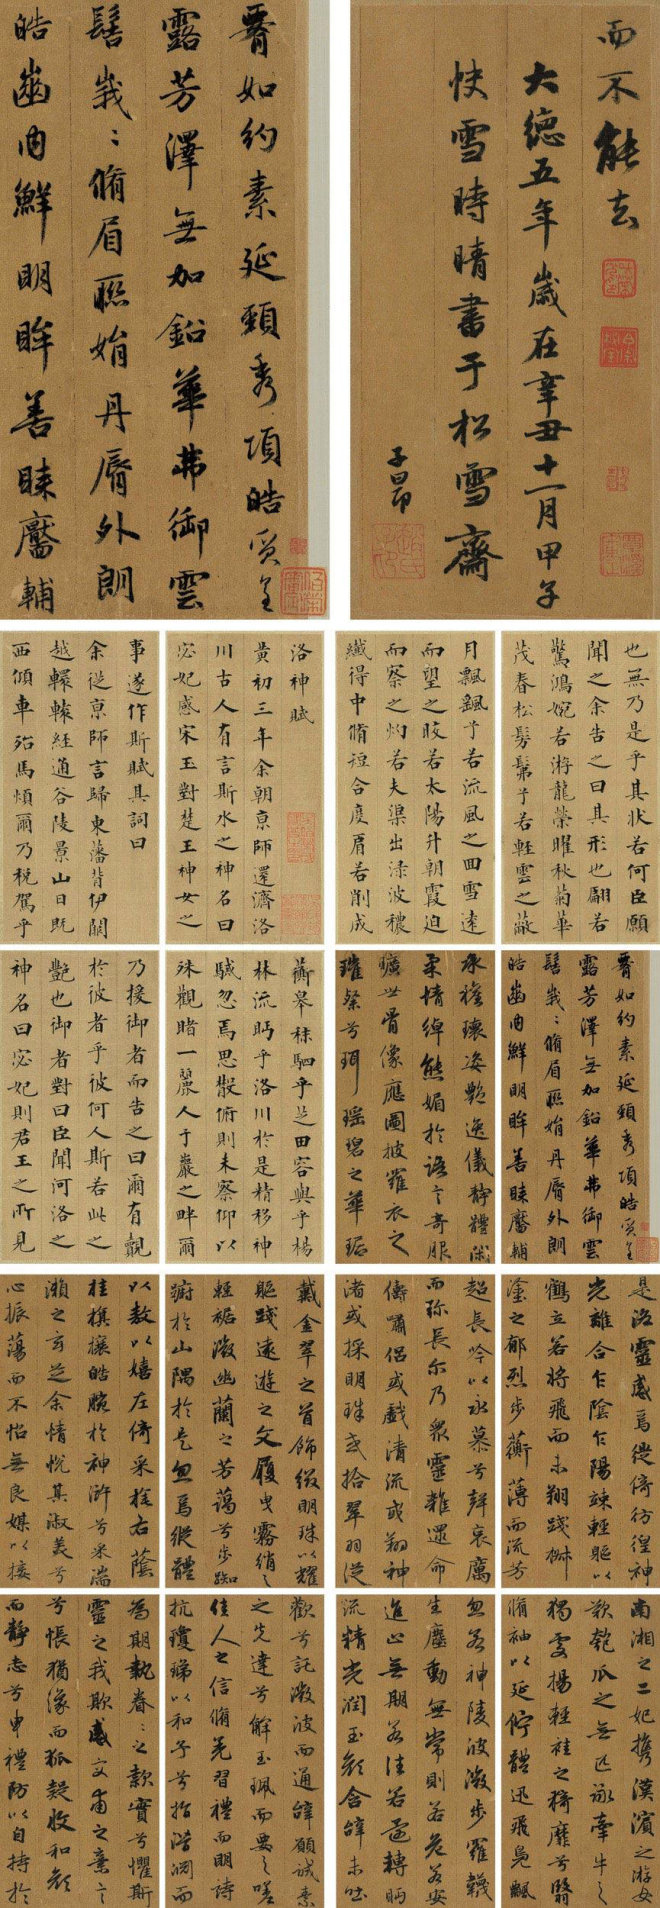 脊如約素延頸秀項皓質呈
露芳澤無加鉛華弗御雲
髻峩〻脩眉聯娟丹脣外朗
皓齒內鮮明眸善睞靨輔
而不能去
大德五年歲在辛丑十一月甲子
快雪時晴書于松雪齋
子昂
洛神賦
黃初三年余朝京師還濟洛
川古人有言斯水之神名曰
宓妃感宋玉對楚王神女之
事遂作斯賦其詞曰
余從京師言歸東藩背伊闕
越轘轅經通谷陵景山日既
西傾車殆馬煩爾乃稅駕乎
蘅皋秣駟乎芝田容與乎楊
林流眄乎洛川於是精移神
駭忽焉思散俯則未察仰以
殊觀睹一麗人于巖之畔爾
乃援御者而告之曰爾有覿
於彼者乎彼何人斯若此之
艷也御者對曰臣聞河洛之
神名曰宓妃則君王之所見
也無乃是乎其狀若何臣願
聞之余告之曰其形也翩若
驚鴻婉若游龍榮曜秋菊華
茂春松髣髴兮若輕雲之蔽
月飄颻兮若流風之回雪遠
而望之皎若太陽升朝霞迫
而察之灼若夫渠出淥波穠
纖得中脩短合度肩若削成
脊如約素延頸秀項皓質呈
露芳澤無加鉛華弗御雲
髻峩〻脩眉聯娟丹脣外朗
皓齒內鮮明眸善睞靨輔
承權瓌姿艷逸儀靜體閑
柔情綽態媚於語言奇服
曠世骨像應圖披羅衣之
璀粲兮珥瑤碧之華琚
戴金翠之首飾綴明珠以耀
軀踐遠遊之文履曳霧綃之
輕裾微幽蘭之芳藹兮步踟
躕於山隅於是忽焉縱體
以敖以嬉左倚采旄右蔭
桂旗攘皓腕於神滸兮采湍
瀨之玄芝余情悅其淑美兮
心振蕩而不怡無良媒以接
歡兮託微波而通辭願誠素
之先達兮解玉珮而要之嗟
佳人之信脩羌習禮而明詩
抗瓊珶以和予兮指潛淵而
為期執眷〻之款實兮懼斯
靈之我欺感交甫之棄言
兮悵猶豫而狐疑收和顏
而靜志兮申禮防以自持於
是洛靈感焉徙倚彷徨神
光離合乍陰乍陽竦輕軀以
鶴立若將飛而未翔踐椒
塗之郁烈步蘅薄而流芳
超長吟以永慕兮聲哀厲
而彌長尔乃眾靈雜遝命
儔嘯侶或戲清流或翔神
渚或採明珠或拾翠羽從
南湘之二妃攜漢濱之游女
歎匏瓜之無匹詠牽牛之
獨處揚輕袿之猗靡兮翳
脩袖以延佇體迅飛鳧飄
忽若神陵波微步羅韈
生塵動無常則若危若安
進止無期若往若還轉眄
流精光潤玉顏含辭未吐